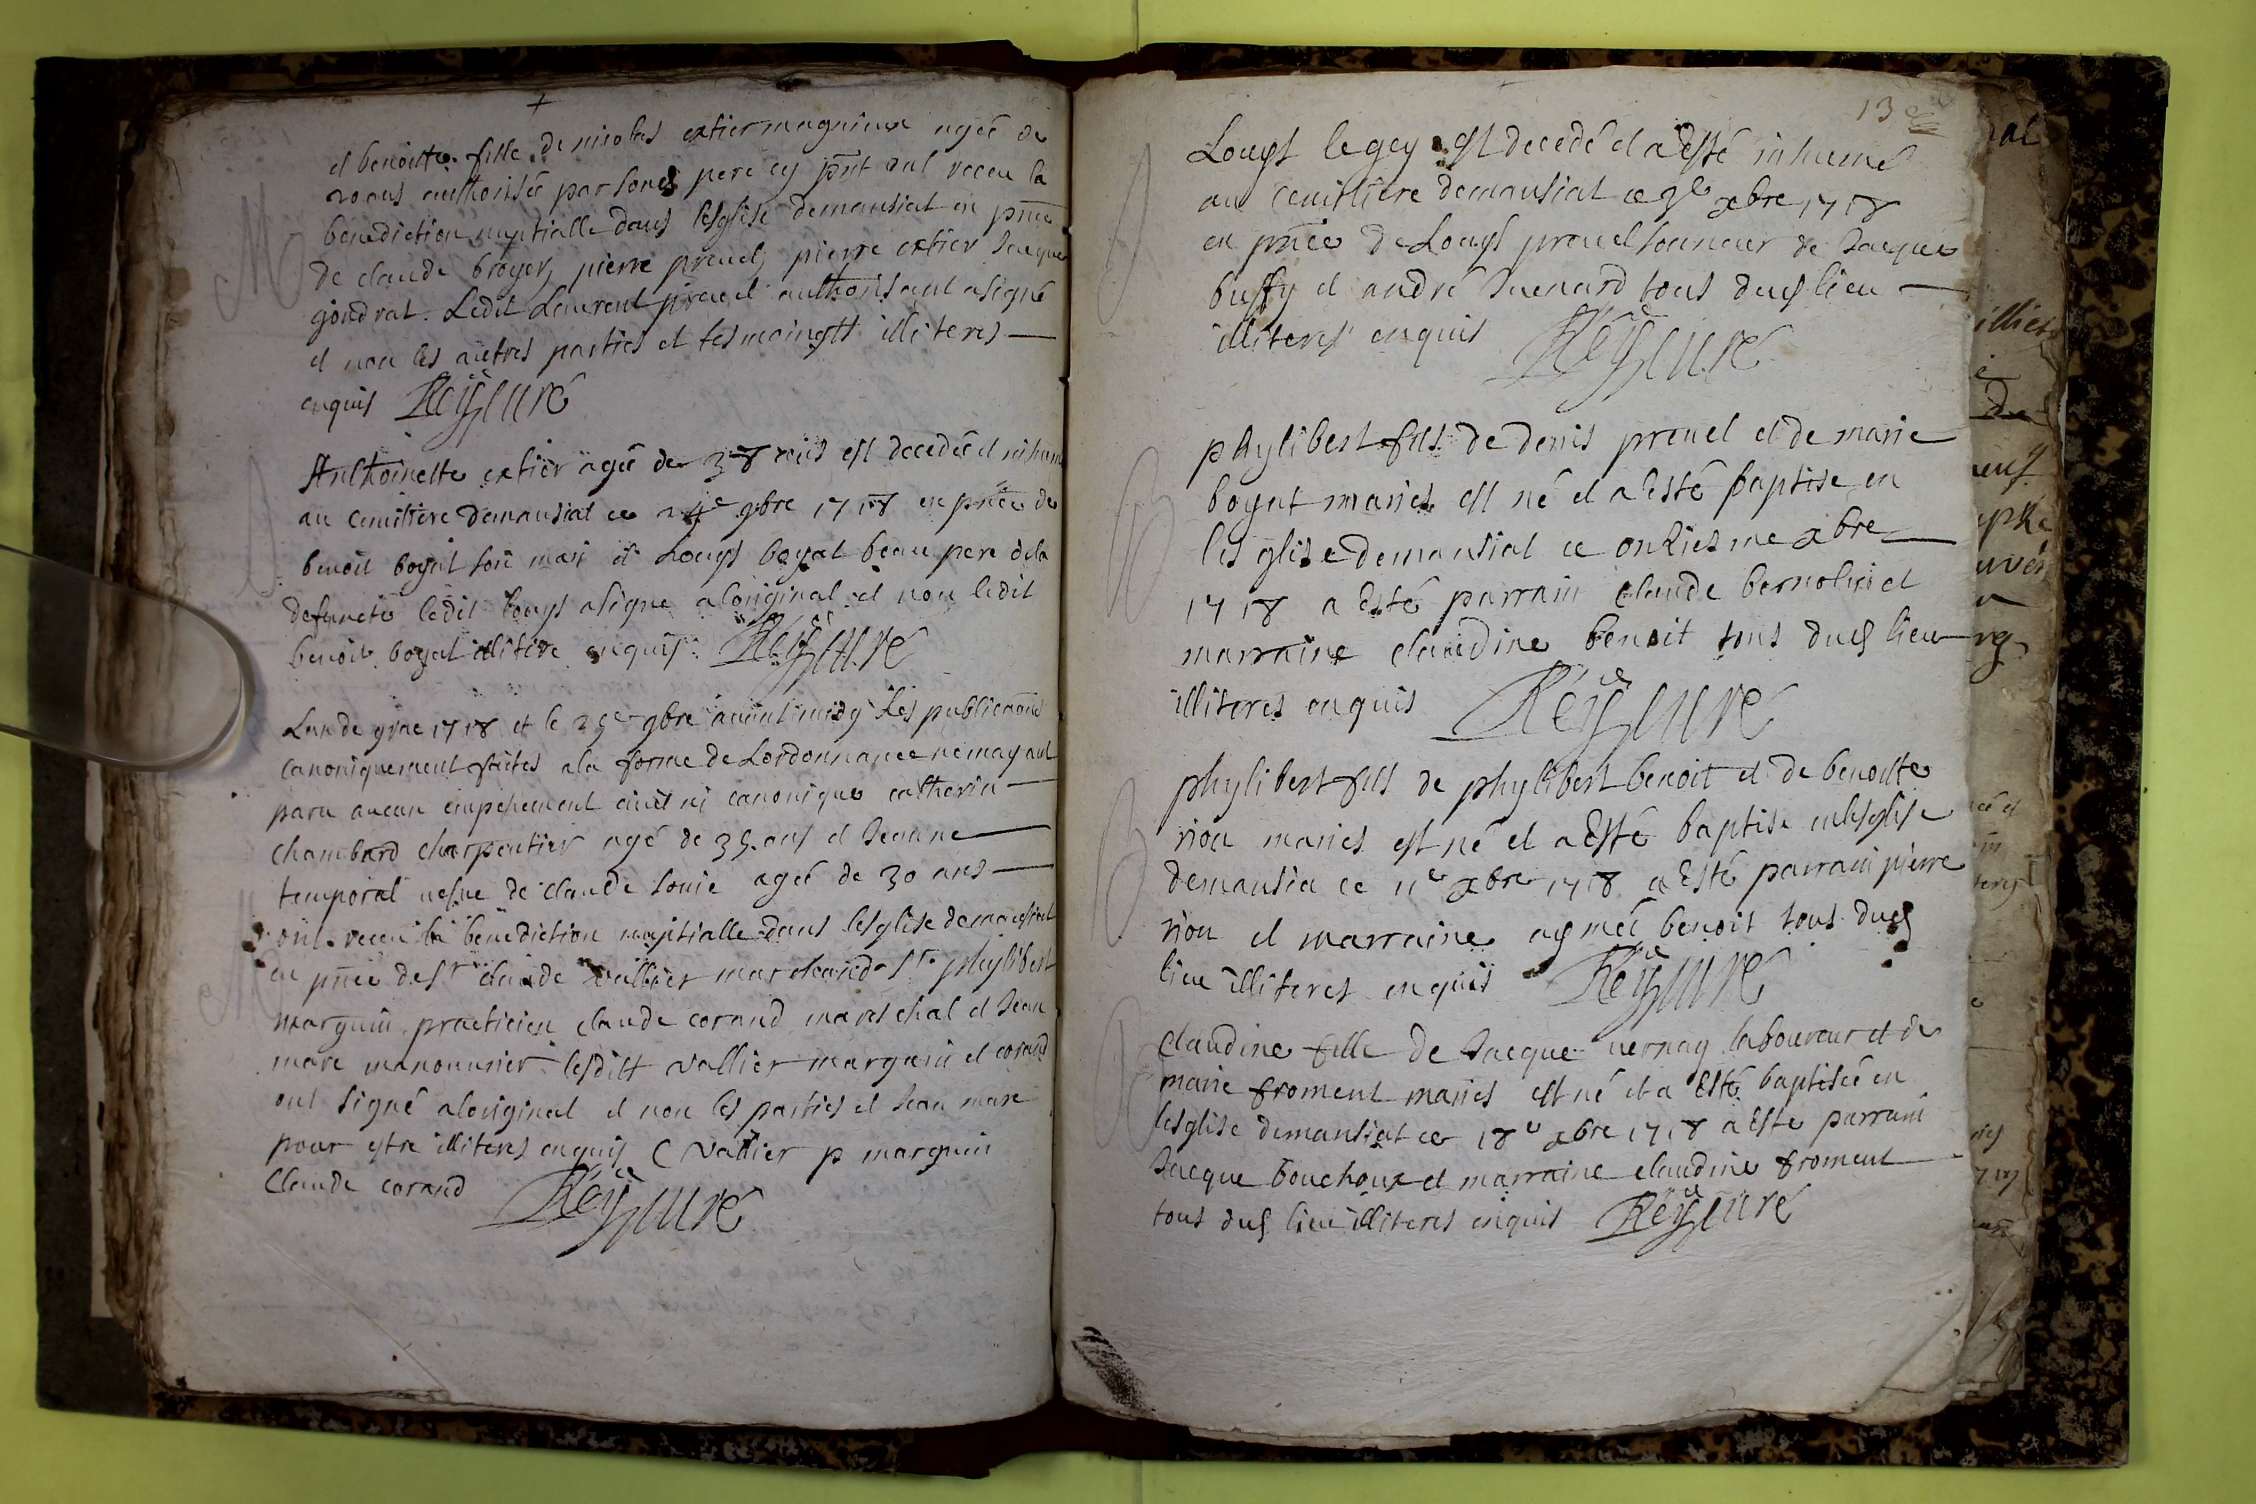 et benoitte fille de nicolas extier magninx agée de
20 ans authorisée par son pere cy pnt ont receu la
benediction nuptialle dans lesglise demansiat en pnce
de claude broyer, pierre preuel, pierre extier Jacque
gondrat. Ledit Laurent preuel authorisant a signé
et non les autres parties et tesmoings illiteres
enquis Rey curé
Anthoinette extier agée de 38 ans est decedée et inhum
au cemitiere demansiat ce 24e 9bre 1718 en pnce de
benoit boyat son mari et Louys boyat beau pere dela
defuncte ledit Louys a signe aloriginal et non ledit
benoit boyat illitere enquis Rey curé
Lan de grace 1718 et le 29e 9bre auant midy Les publicaons
canoniquement faites a la forme de Lordonnance ne mayant
paru aucun empechement ciuil ni canonique catherin
chambard charpentier agé de 35 ans et Jeanne
temporal uefue de claude souie agée de 30 ans
ont receu la benediction nuptialle dans lesglise demansiat
en pnce de Sr claude vallier marchand Sr phylibert
marguin practicien claude corand mareschal et Jean
mare manouurier lesditt vallier marguin et corand
ont signé aloriginal et non les parties et Jean mare
pour estre illiteres enquis C vallier p marguin
Claude corand Rey curé
13
Louys legey est decedé et a Esté inhumé
au cemitiere demansiat ce 3e xbre 1718
en pnce de Louys preuel sonneur de Jacque
buffy et andré Juenard tous dud lieu
illiteres enquis Rey curé
phylibert fils de denis preuel et de marie
boyat maries est né et a Esté baptise en
lesglise demansiat ce onziesme xbre
1718 a Esté parrain claude bernolin et
marraine claudine benoit tous dud lieu
illiteres enquis Rey curé
phylibert fils de phylibert benoit et de benoitte
rion maries est né et a Esté baptise enlesglise
demansia ce 11e xbre 1718 a Esté parrain pierre
rion et marraine aymée benoit tous dud
lieu illiteres enquis Rey curé
Claudine fille de Jacque uernay laboureur et de
marie froment maries est né et a Esté baptisée en
lesglise demansiat ce 18e xbre 1718 a Esté parrain
Jacque bouchoux et marraine claudine froment
tous dud lieu illiteres enquis Rey curé